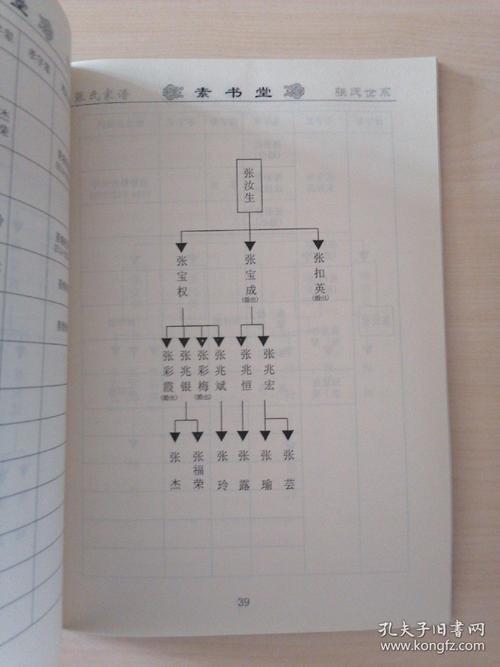 张氏家谱
素书堂
张氏世系
张汝生
张宝权
张宝成
张扣英
张彩霞
张兆银
张彩梅
张兆斌
张兆恒
张兆宏
张杰
张福荣
张玲
张露
张瑜
张芸
39
孔夫子旧书网
www.kongfz.com